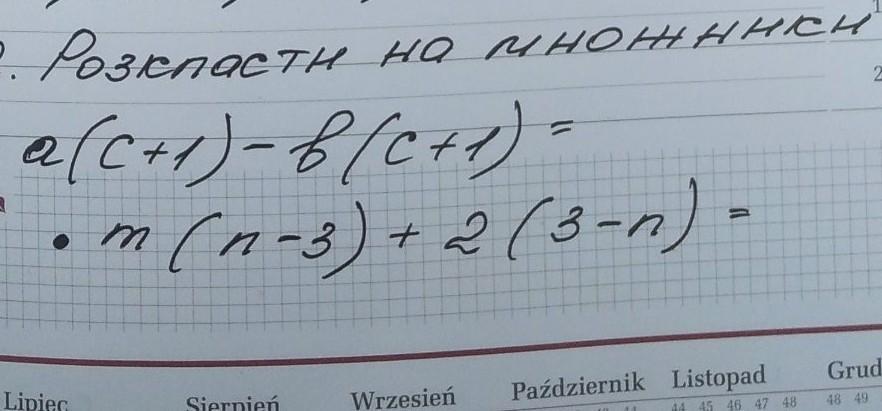 . Розкласти на множники
a(c+1)-b(c+1)=
• m(n-3)+2(3-n)=
Lipiec Sierpień Wrzesień Październik Listopad Grud
44 45 46 47 48 48 49